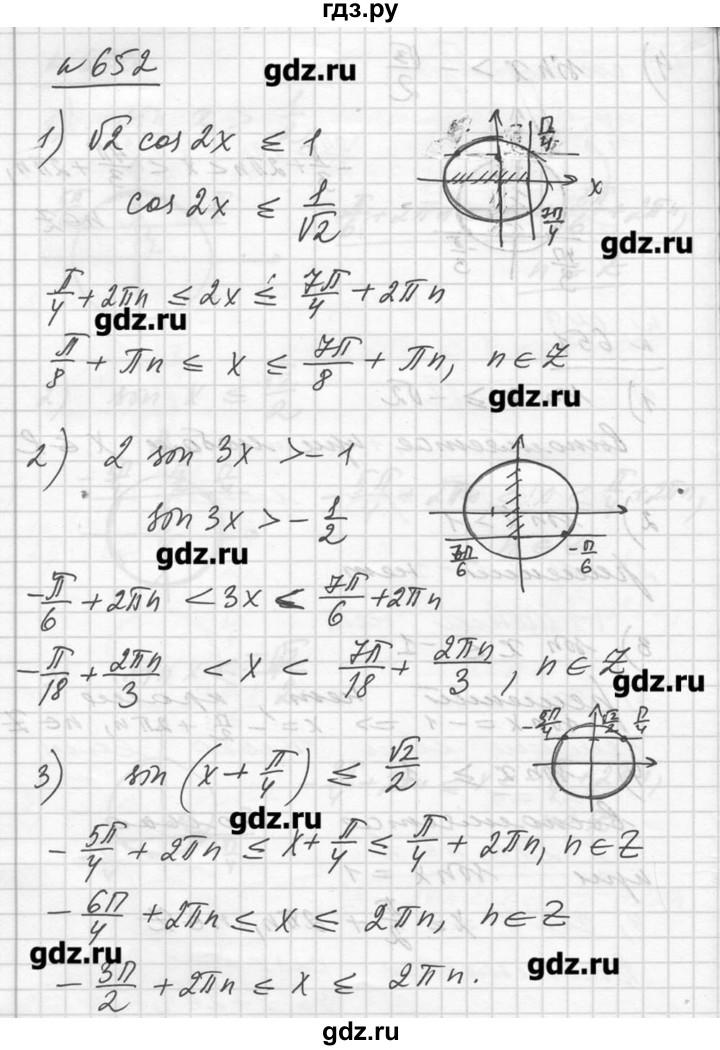 гдз.ру
№ 652
gdz.ru
1) √2 cos 2x ≤ 1
π/4
x
7π/4
cos 2x ≤ 1/√2
gdz.ru
π/4 + 2πn ≤ 2x ≤ 7π/4 + 2πn
gdz.ru
π/8 + πn ≤ x ≤ 7π/8 + πn, n ∈ Z
gdz.ru
2) 2 sin 3x > -1
sin 3x > -1/2
gdz.ru
7π/6
-π/6
-π/6 + 2πn < 3x < 7π/6 + 2πn
-π/18 + 2πn/3 < x < 7π/18 + 2πn/3, n ∈ Z
gdz.ru
-5π/4 √2/2 π/4
3) sin (x + π/4) ≤ √2/2
gdz.ru
-5π/4 + 2πn ≤ x + π/4 ≤ π/4 + 2πn, n ∈ Z
-6π/4 + 2πn ≤ x ≤ 2πn, n ∈ Z
gdz.ru
-3π/2 + 2πn ≤ x ≤ 2πn.
gdz.ru
gdz.ru